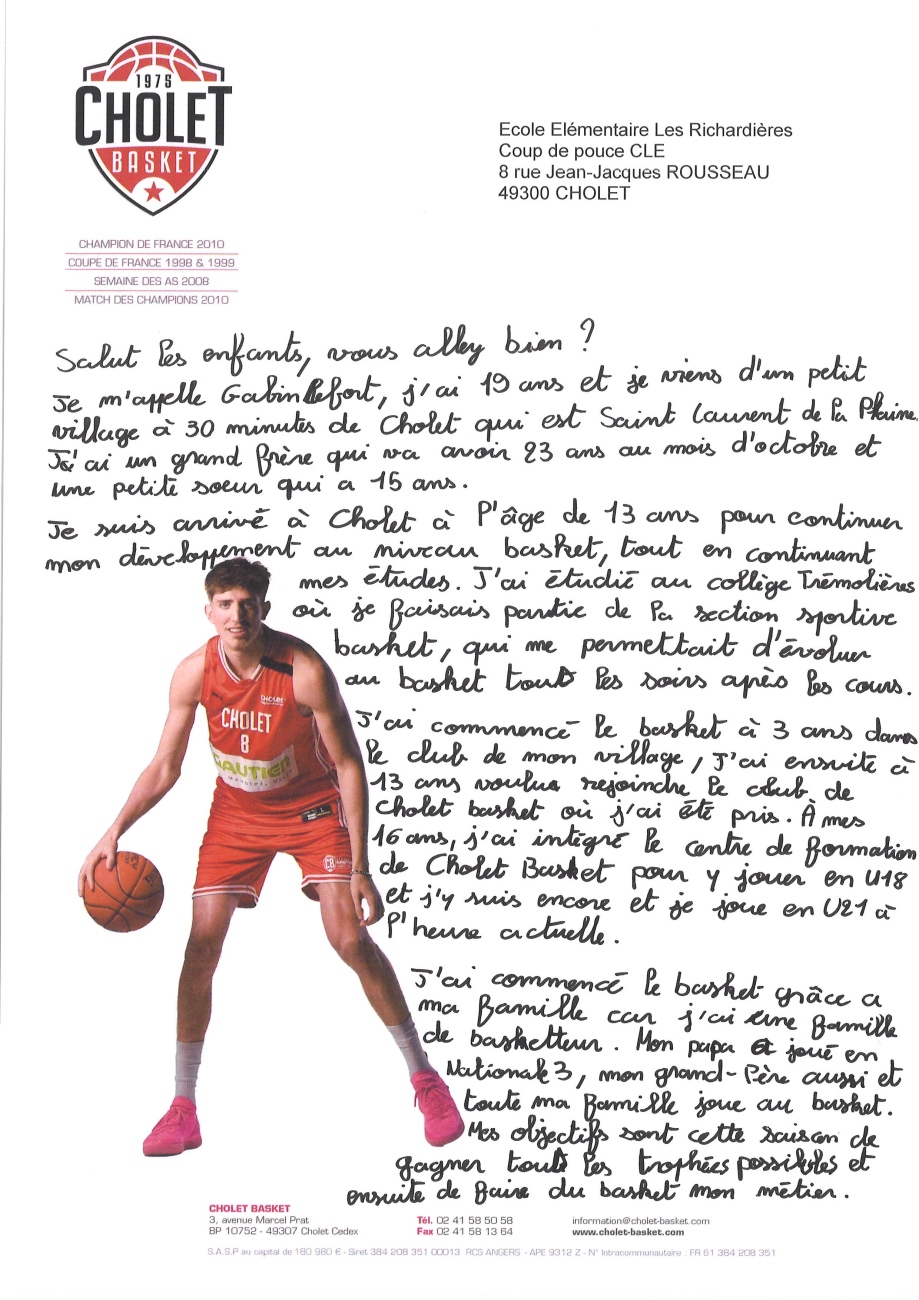 1975
CHOLET
BASKET
Ecole Elémentaire Les Richardières
Coup de pouce CLE
8 rue Jean-Jacques ROUSSEAU
49300 CHOLET
CHAMPION DE FRANCE 2010
COUPE DE FRANCE 1998 & 1999
SEMAINE DES AS 2008
MATCH DES CHAMPIONS 2010
Salut les enfants, vous allez bien ?
Je m'appelle Gabin Lefort, j'ai 19 ans et je viens d'un petit
village à 30 minutes de Cholet qui est Saint Laurent de la Plaine.
J'ai un grand frère qui va avoir 23 ans au mois d'octobre et
une petite soeur qui a 15 ans.
Je suis arrivé à Cholet à l'âge de 13 ans pour continuer
mon développement au niveau basket, tout en continuant
mes études. J'ai étudié au collège Trémolières
où je faisais partie de la section sportive
basket, qui me permettait d'évoluer
au basket tout les soirs après les cours.
J'ai commencé le basket à 3 ans dans
le club de mon village, j'ai ensuite à
13 ans voulu rejoindre le club de
Cholet basket où j'ai été pris. À mes
16 ans, j'ai intégré le centre de formation
de Cholet Basket pour y jouer en U18
et j'y suis encore et je joue en U21 à
l'heure actuelle.
J'ai commencé le basket grâce a
ma famille car j'ai une famille
de basketteur. Mon papa a joué en
Nationale 3, mon grand-Père aussi et
toute ma famille joue au basket.
Mes objectifs sont cette saison de
gagner tout les trophées possibles et
ensuite de faire du basket mon métier.
CHOLET
8
GAUTIER
CHOLET BASKET
3, avenue Marcel Prat
BP 10752 - 49307 Cholet Cedex
Tél. 02 41 58 50 58
Fax 02 41 58 13 64
information@cholet-basket.com
www.cholet-basket.com
S.A.S.P au capital de 180 980 € - Siret 384 208 351 00013 RCS ANGERS - APE 9312 Z - N° Intracommunautaire : FR 61 384 208 351